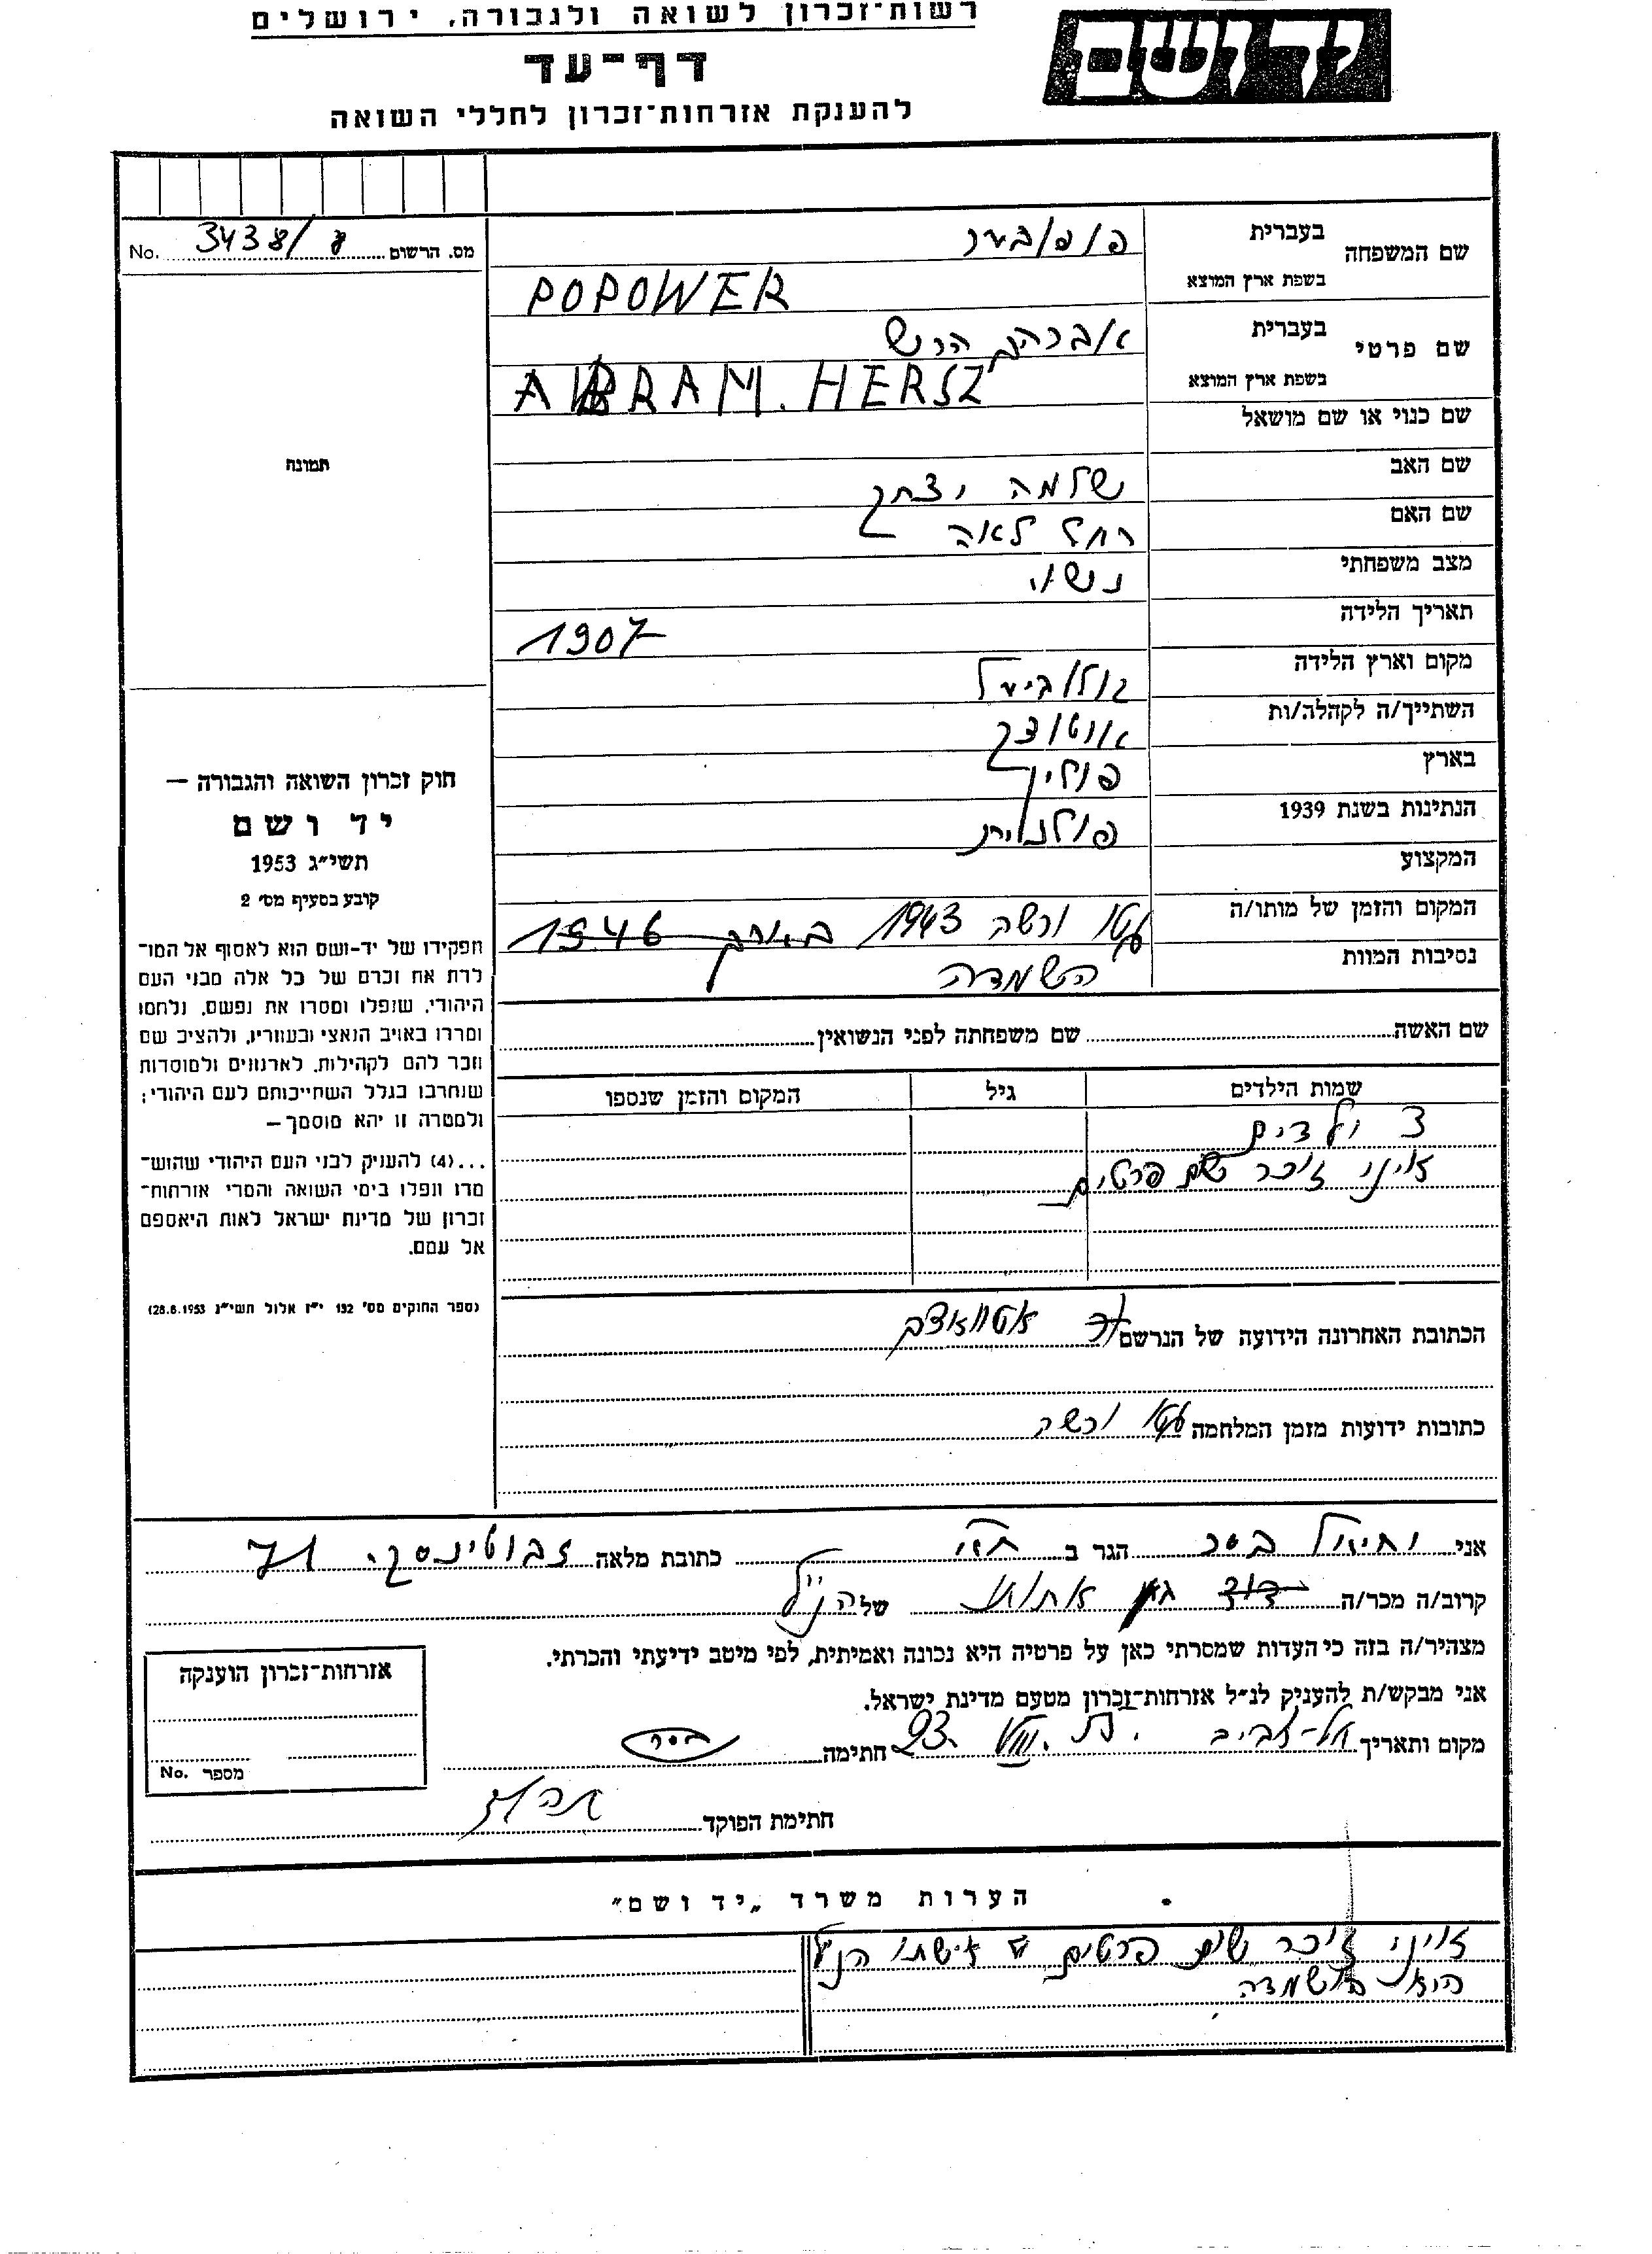 רשות־זכרון לשואה ולגבורה, ירושלים
יד ושם
דף־עד
להענקת אזרחות־זכרון לחללי השואה
מס. הרשום 3438/ No.
שם המשפחה
בעברית
בשפת ארץ המוצא POPOWER
שם פרטי
בעברית אברהם הרש
בשפת ארץ המוצא ABRAM. HERSZ
שם כנוי או שם מושאל
שם האב שלמה יצחק
שם האם רחל לאה
מצב משפחתי נשוי
תאריך הלידה 1907
מקום וארץ הלידה
השתייך/ה לקהלה/ות אוטוצק
בארץ פולין
הנתינות בשנת 1939 פולנית
המקצוע
המקום והזמן של מותו/ה גטו ורשה 1943
נסיבות המוות השמדה
תמונה
חוק זכרון השואה והגבורה —
יד ושם
תשי״ג 1953
קובע בסעיף מס׳ 2
תפקידו של יד-ושם הוא לאסוף אל המו־
לדת את זכרם של כל אלה מבני העם
היהודי, שנפלו ומסרו את נפשם, נלחמו
ומרדו באויב הנאצי ובעוזריו, ולהציב שם
וזכר להם לקהילות, לארגונים ולמוסדות
שנחרבו בגלל השתייכותם לעם היהודי;
ולמטרה זו יהא מוסמך —
...(4) להענק לבני העם היהודי שהוש־
מדו ונפלו בימי השואה והמרי אזרחות־
זכרון של מדינת ישראל לאות היאספם
אל עמם.
(ספר החוקים מס׳ 132 י״ז אלול תשי״ג 28.8.1953)
שם האשה שם משפחתה לפני הנשואין
שמות הילדים גיל המקום והזמן שנספו
3 ילדים
אינני זוכר שם פרטים
הכתובת האחרונה הידועה של הנרשם
כתובות ידועות מזמן המלחמה גטו ורשה
אני הגר ב כתובת מלאה זבוטינסקי 71
קרוב/ה מכר/ה של הנ״ל
מצהיר/ה בזה כי העדות שמסרתי כאן על פרטיה היא נכונה ואמיתית, לפי מיטב ידיעתי והכרתי.
אני מבקש/ת להעניק לנ״ל אזרחות־זכרון מטעם מדינת ישראל.
מקום ותאריך תל-אביב חתימה
חתימת הפוקד
אזרחות־זכרון הוענקה
מספר No.
הערות משרד „יד ושם״
אינני זוכר שום פרטים אישתו הנ״ל
היא הושמדה